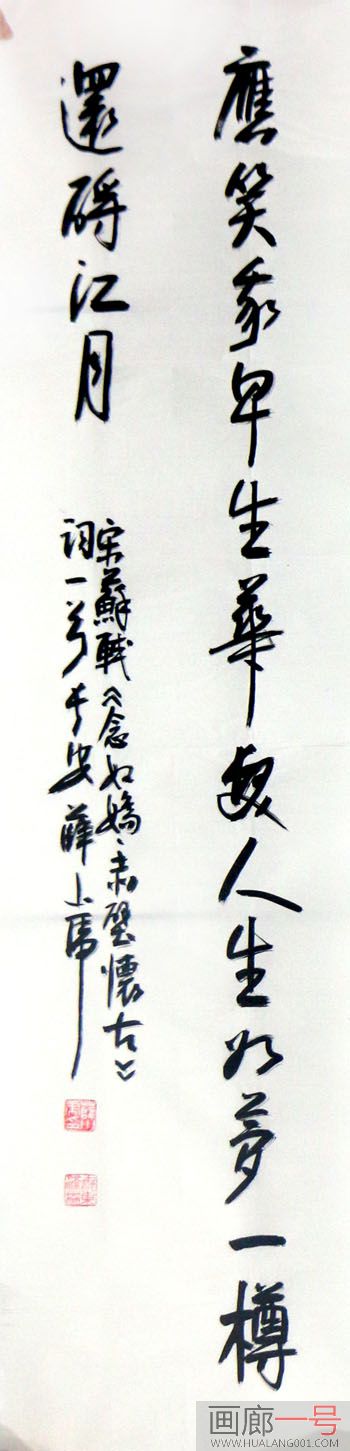 應笑我早生華髮人生如夢一樽
還酹江月
宋蘇軾《念奴嬌·赤壁懷古》
詞一首長安薛
画廊一号
WWW.HUALANG001.COM